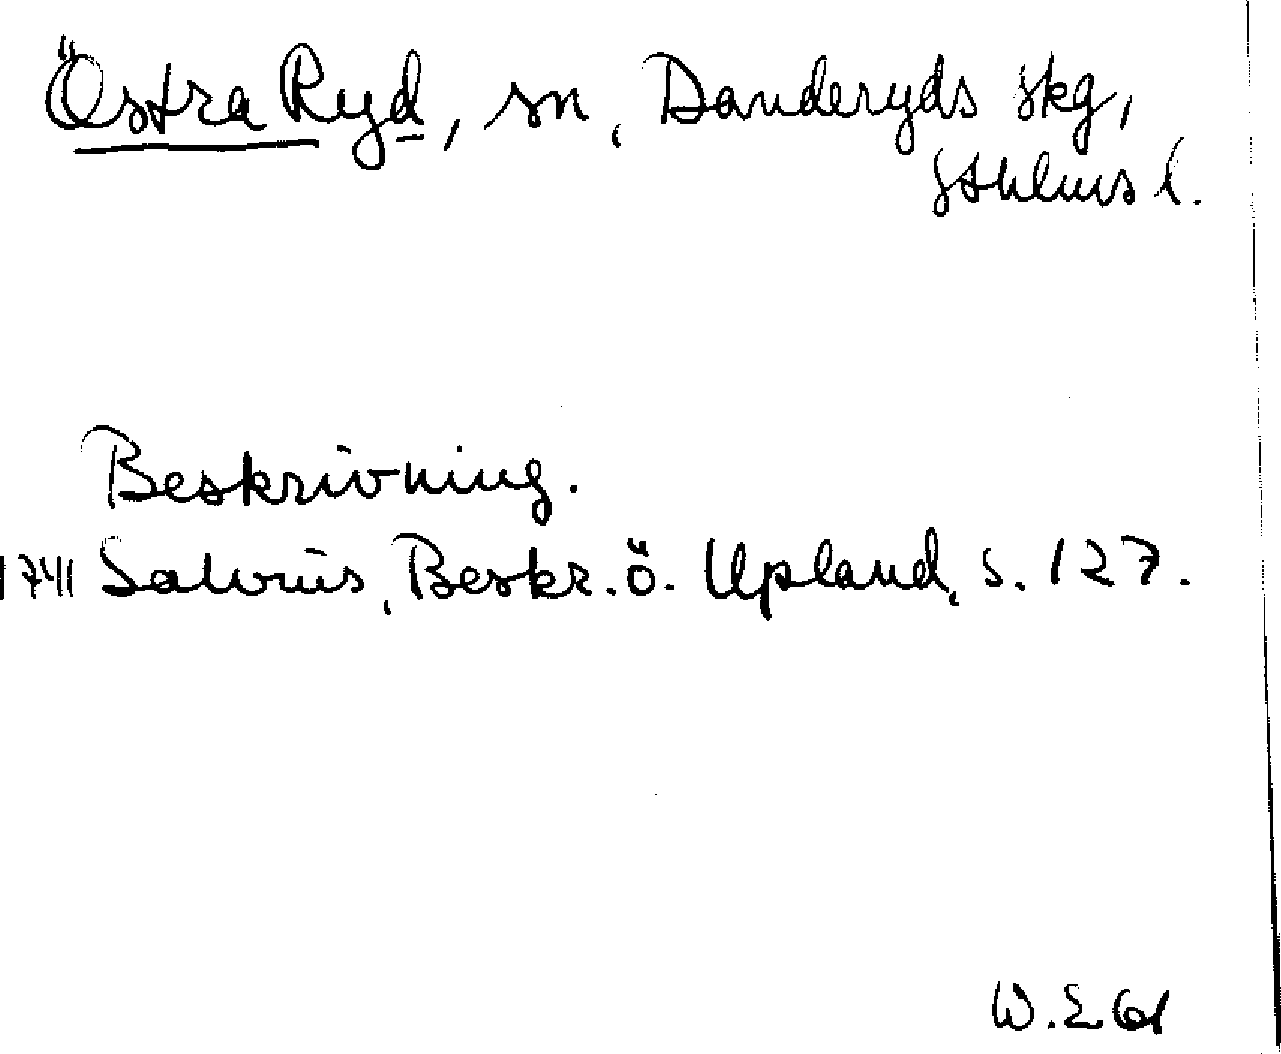 Östra Ryd, sn, Danderyds skg,
Sthlms l.
Beskrivning.
1741 Salvius, Beskr. ö. Upland, s. 127.
W.E 61